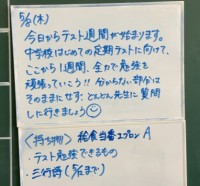 5/8(木)
今日からテスト週間が始まります。
中学校はじめての定期テストに向けて、
ここから1週間、全力で勉強を
頑張っていこう!! 分からない部分は
そのままにせず、どんどん先生に質問
しに行きましょう
<持ち物> 給食当番エプロン A
・テスト勉強できるもの
・三行詩 (まで)